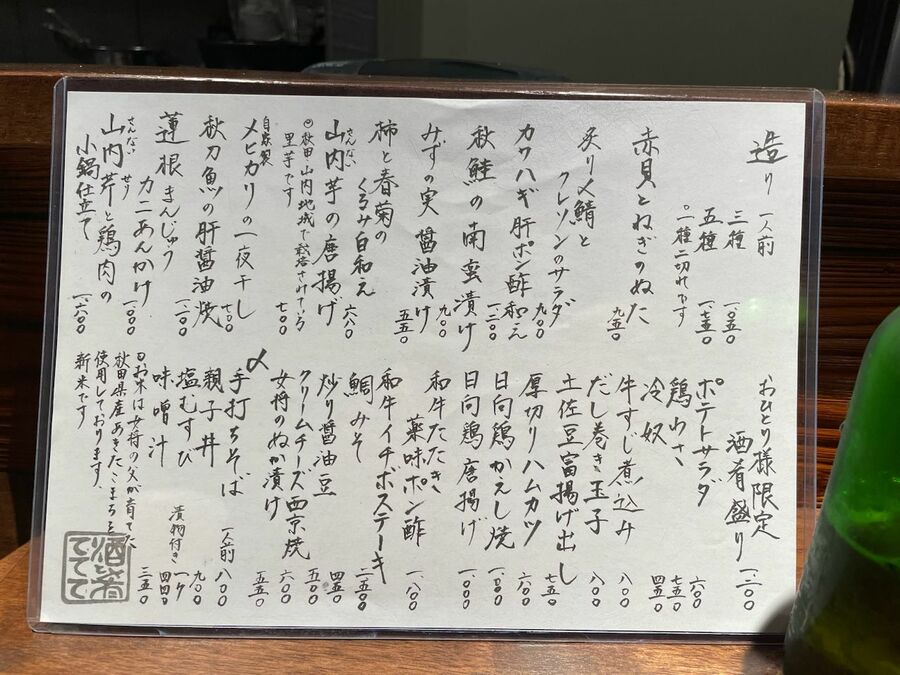 造り 一人前
三種 一、〇五〇
五種 一、七五〇
◦一種二切れです
赤貝とねぎのぬた 九五〇
炙り〆鯖と
クレソンのサラダ 九〇〇
カワハギ肝ポン酢和え 一、二〇〇
秋鮭の南蛮漬け 九〇〇
みずの実醤油漬け 五五〇
柿と春菊の
くるみ白和え 六八〇
さんない
山内芋の唐揚げ 七〇〇
◎秋田山内地域で栽培されている
里芋です
自家製
メヒカリの一夜干し 七〇〇
秋刀魚の肝醤油焼 一、一〇〇
蓮根まんじゅう
カニあんかけ 一、〇〇〇
さんない せり
山内芹と鶏肉の
小鍋仕立て 一、六〇〇
おひとり様限定
酒肴盛り 一、二〇〇
ポテトサラダ 六〇〇
鶏わさ 七五〇
冷奴 四五〇
牛すじ煮込み 八〇〇
だし巻き玉子 八〇〇
土佐豆富揚げ出し 七五〇
厚切りハムカツ 六〇〇
日向鶏かえし焼 一、〇〇〇
日向鶏唐揚げ 一、〇〇〇
和牛たたき
薬味ポン酢 一、八〇〇
和牛イチボステーキ 二、五〇〇
鯛みそ 四五〇
炒り醤油豆 五〇〇
クリームチーズ西京焼 六〇〇
女将のぬか漬け 五五〇
〆
手打ちそば 一人前 八〇〇
親子丼 漬物付き 九〇〇
塩むすび 一ケ 四四〇
味噌汁 三五〇
◎お米は女将の父が育てた、
秋田県産あきたこまちを
使用しております。
新米です
酒肴
てててて